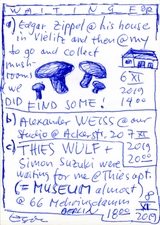 WAITING FOR
a) Edgar Zippel @ his house
in Vielitz and then @ my
to go and collect
mush-
rooms!
we
DID FIND SOME!
6 XI
2019
19 00
b) Alexander WEISS @ our
studio @ Ackerstr. 20 7 XI
2019
20 00
c) THIES WULF +
Simon Suzuki were
waiting for me @ Thies apt.
(= MUSEUM almost)
@ 66
BERLIN 18 00
8
XI
2019